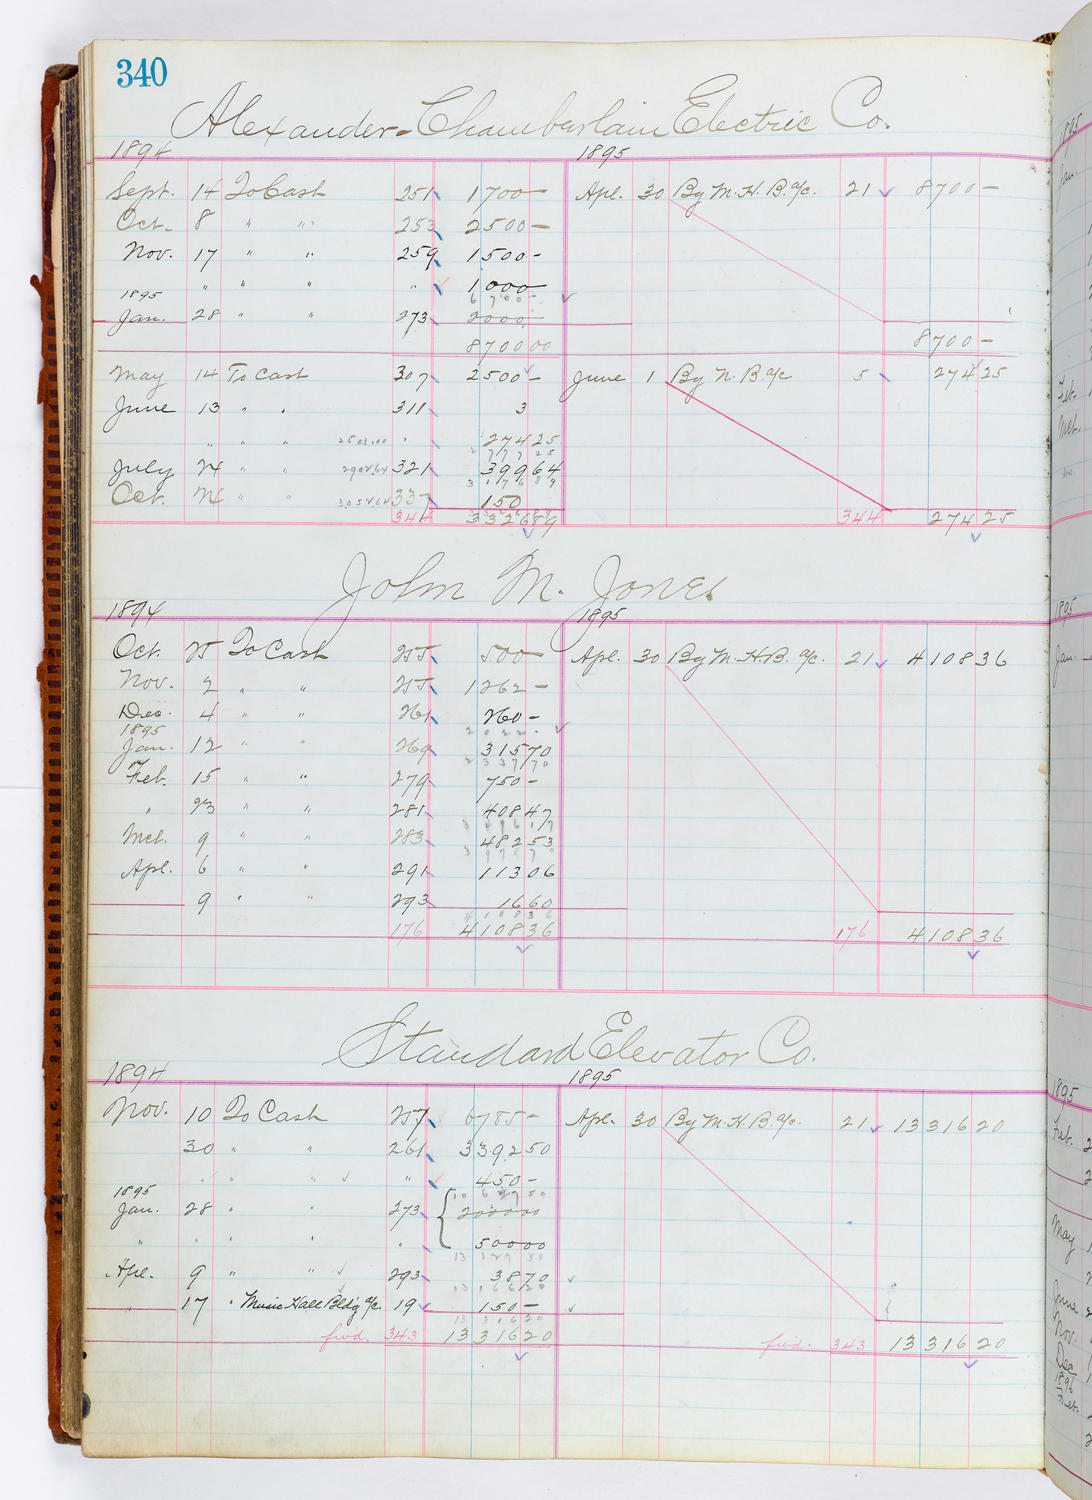 340
Alexander-Chamberlain Electric Co.
1894 1895
Sept. 14 To Cash 251 1700 — Apl. 30 By M. H. B. a/c. 21 8700 —
Oct. 8 " " 253 2500 —
Nov. 17 " " 259 1500 -
" " " " " 1000
1895 6700 -
Jan. 28 " " 273 2000
870000 8700 -
May 14 To Cash 307 2500 - June 1 By N. B. a/c 5 27425
June 13 " " 311 3
" " " 2503.00 " 27425
277725
July 24 " " 2902.64 321 39964
317689
Oct. 24 " " 3052.64 337 150
344 332689 344 27425
John M. Jones
1894 1895
Oct. 25 To Cash 255 500 — Apl. 30 By M. H. B. a/c. 21 410836
Nov. 2 " " 255 1262 -
Dec. 4 " " 261 260 -
1895 2022.
Jan. 12 " " 269 31570
233770
Feb. 15 " " 279 750 -
" 23 " " 281 40847
349617
Mch. 9 " " 283 48253
397870
Apl. 6 " " 291 11306
9 " " 293 1660
410836
176 410836 176 410836
Standard Elevator Co.
1894 1895
Nov. 10 To Cash 257 6785 - Apl. 30 By M. H. B. a/c. 21 1331620
30 " " 261 339250
" " " " 450 -
1895 1062750
Jan. 28 " " 273 200000
" " " " " 50000
Apl. 9 " " 293 3870
1316620
" 17 " Music Hall Bldg a/c 19 150 -
1331620
fwd. 343 1331620 fwd. 343 1331620
1895
Jan.
Feb.
Mch.
1895
Jan.
1895
Feb.
May
June
Nov.
Dec.
1896
Feb.